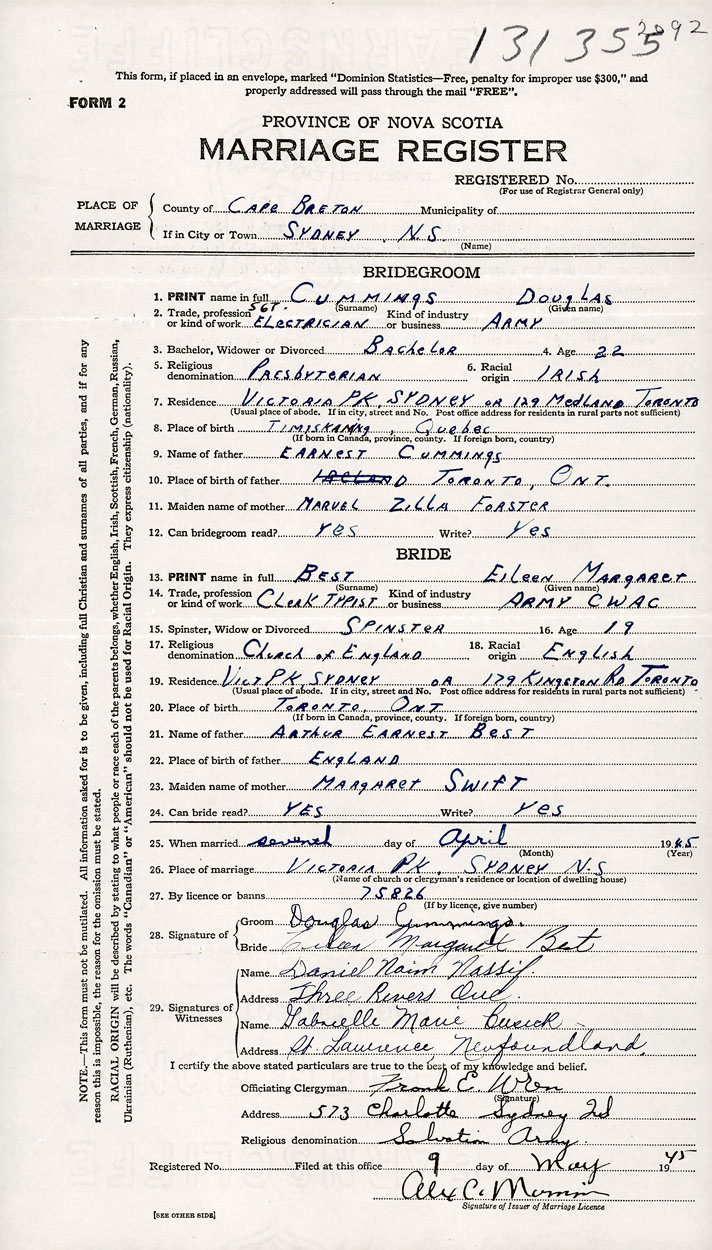 131355 2092
This form, if placed in an envelope, marked "Dominion Statistics—Free, penalty for improper use $300," and
properly addressed will pass through the mail "FREE".
FORM 2
PROVINCE OF NOVA SCOTIA
MARRIAGE REGISTER
REGISTERED No.
(For use of Registrar General only)
PLACE OF MARRIAGE
County of CAPE BRETON Municipality of
If in City or Town SYDNEY, N.S.
(Name)
BRIDEGROOM
1. PRINT name in full CUMMINGS DOUGLAS
(Surname) (Given name)
2. Trade, profession or kind of work SGT. ELECTRICIAN Kind of industry or business ARMY
3. Bachelor, Widower or Divorced BACHELOR 4. Age 22
5. Religious denomination PRESBYTERIAN 6. Racial origin IRISH
7. Residence VICTORIA PK, SYDNEY OR 129 MEDLAND TORONTO
(Usual place of abode. If in city, street and No. Post office address for residents in rural parts not sufficient)
8. Place of birth TIMISKAMING, QUEBEC
(If born in Canada, province, county. If foreign born, country)
9. Name of father EARNEST CUMMINGS
10. Place of birth of father IRELAND TORONTO, ONT.
11. Maiden name of mother MARVEL ZILLA FORSTER
12. Can bridegroom read? YES Write? YES
BRIDE
13. PRINT name in full BEST EILEEN MARGARET
(Surname) (Given name)
14. Trade, profession or kind of work CLERK TYPIST Kind of industry or business ARMY CWAC
15. Spinster, Widow or Divorced SPINSTER 16. Age 19
17. Religious denomination CHURCH OF ENGLAND 18. Racial origin ENGLISH
19. Residence VICT PK, SYDNEY OR 179 KINGSTON RD TORONTO
(Usual place of abode. If in city, street and No. Post office address for residents in rural parts not sufficient)
20. Place of birth TORONTO, ONT
(If born in Canada, province, county. If foreign born, country)
21. Name of father ARTHUR EARNEST BEST
22. Place of birth of father ENGLAND
23. Maiden name of mother MARGARET SWIFT
24. Can bride read? YES Write? YES
25. When married seventh day of April 1945
(Month) (Year)
26. Place of marriage VICTORIA PK, SYDNEY N.S
(Name of church or clergyman's residence or location of dwelling house)
27. By licence or banns 75826
(If by licence, give number)
28. Signature of
Groom Douglas Cummings.
Bride Eileen Margaret Best
29. Signatures of Witnesses
Name Daniel Naim Nassif.
Address Three Rivers Que.
Name Gabrielle Marie Cusick
Address St. Lawrence, Newfoundland.
I certify the above stated particulars are true to the best of my knowledge and belief.
Officiating Clergyman Frank E. Wren
(Signature)
Address 573 Charlotte Sydney
Religious denomination Salvation Army.
Registered No. Filed at this office 9 day of May 1945
Signature of Issuer of Marriage Licence
[SEE OTHER SIDE]
NOTE.—This form must not be mutilated. All information asked for is to be given, including full Christian and surnames of all parties, and if for any
reason this is impossible, the reason for the omission must be stated.
RACIAL ORIGIN will be described by stating to what people or race each of the parents belongs, whether English, Irish, Scottish, French, German, Russian,
Ukrainian (Ruthenian), etc. The words "Canadian" or "American" should not be used for Racial Origin. They express citizenship (nationality).